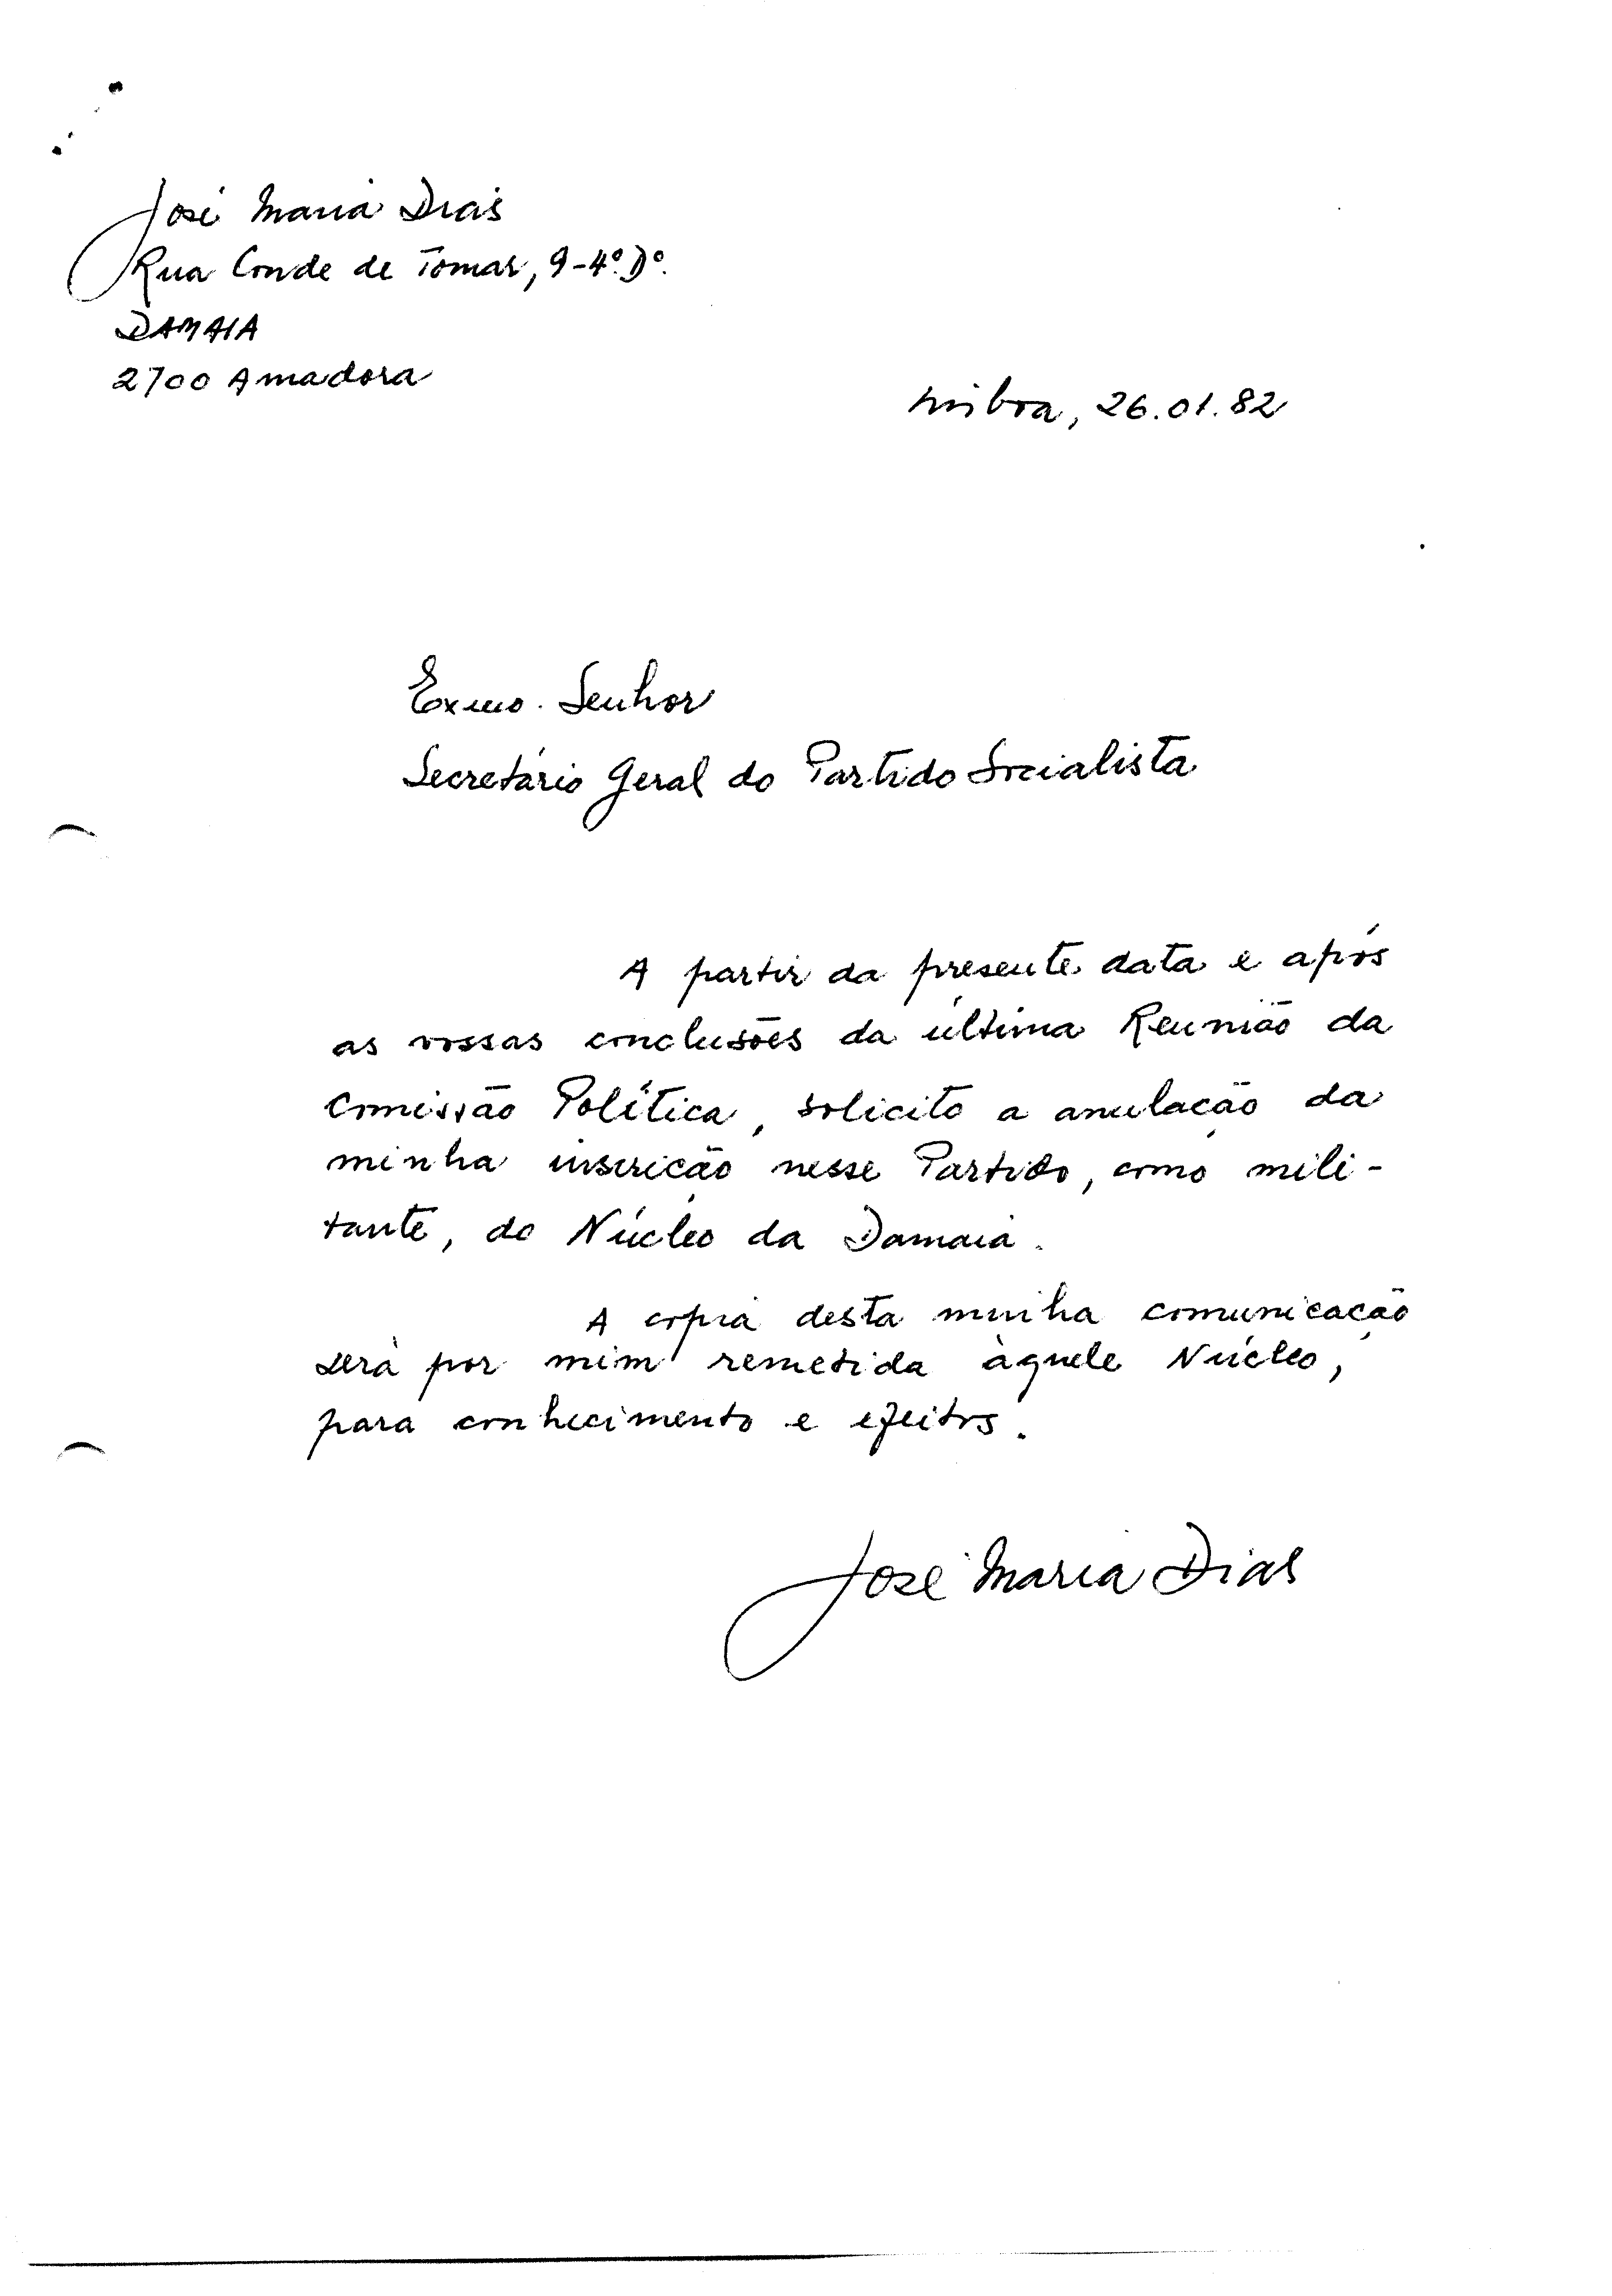 José Maria Dias
Rua Conde de Tomar, 9-4º.Dº.
DAMAIA
2700 Amadora
Lisboa, 26.01.82
Exmo. Senhor
Secretário Geral do Partido Socialista
A partir da presente data e após
as vossas conclusões da última Reunião da
Comissão Política, solicito a anulação da
minha inscrição nesse Partido, como mili-
tante, do Núcleo da Damaia.
A cópia desta minha comunicação
será por mim remetida àquele Núcleo,
para conhecimento e efeitos.
José Maria Dias